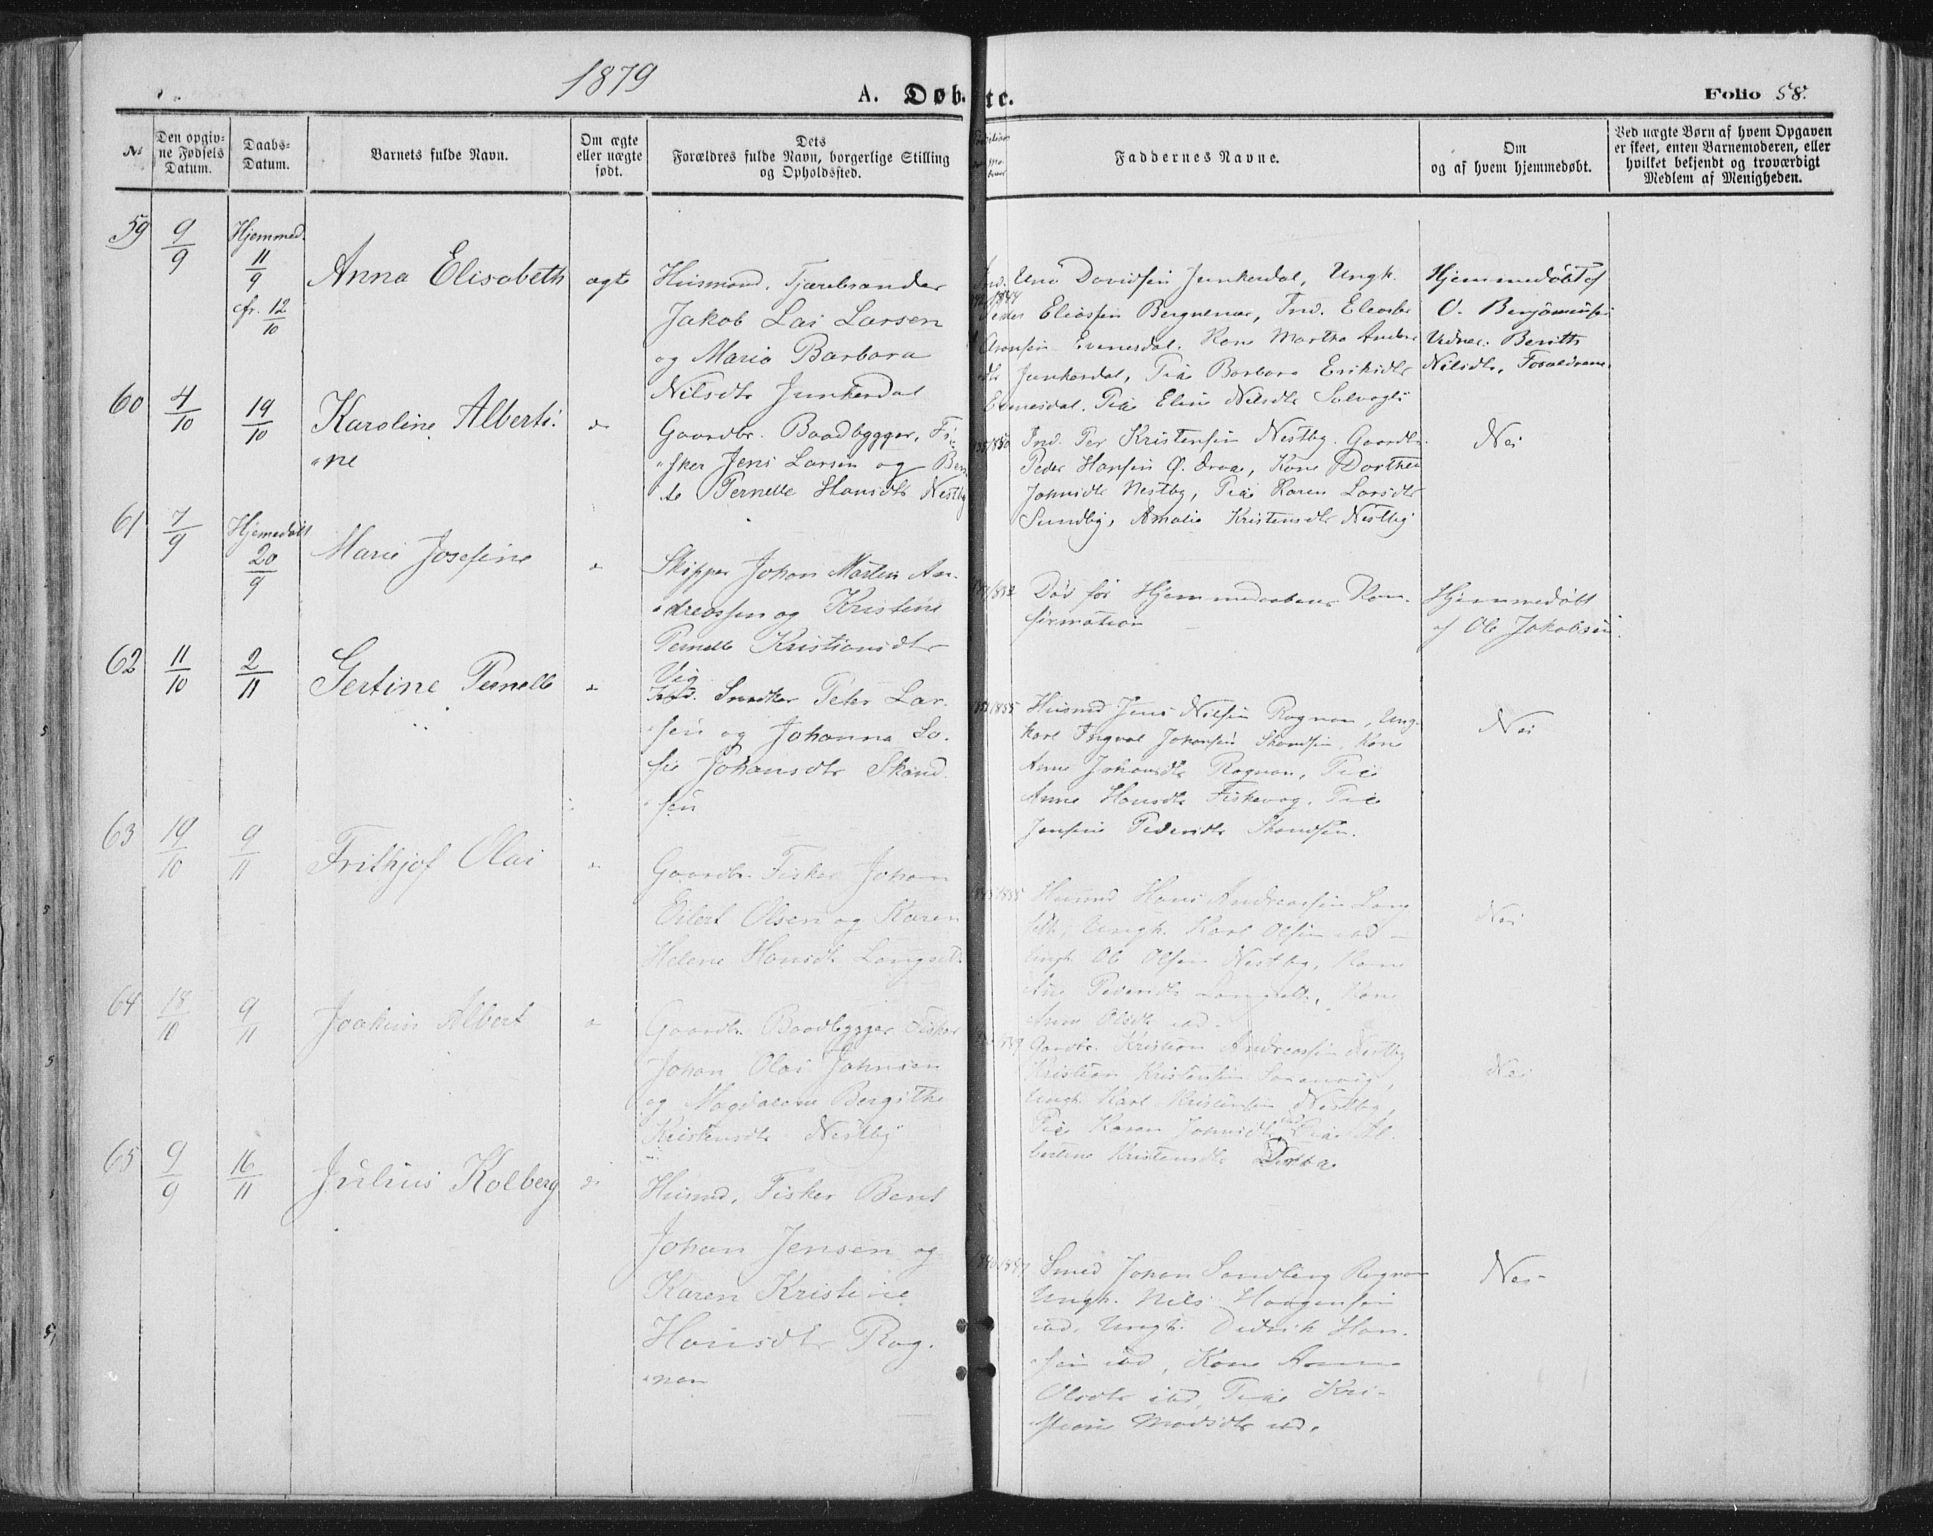 1879
A. Døbte.
Folio 58.
№
Den opgivne Fødsels Datum.
Daabs-Datum.
Barnets fulde Navn.
Om ægte eller uægte født.
Dets Forældres fulde Navn, borgerlige Stilling og Opholdssted.
Faddernes Navne.
Om og af hvem hjemmedøbt.
Ved uægte Børn af hvem Opgaven er skeet, enten Barnemoderen, eller hvilket bekjendt og troværdigt Medlem af Menigheden.
59
9/9
Hjemmed.
11/9
cfr. 12/10
Anna Elisabeth
ægte
Husmand, Tjærebrander
Jakob Lai Larsen
og Maria Barbara
Nilsdtr Junkerdal
Davidsen Junkerdal, Ungk.
Eliassen Bergnenes, Ind.
Aronsen Evenesdal, Kone Martha Anders
dtr Junkerdal, Pige Barbara Eriksdtr
Evenesdal, Pige Eline Nilsdtr Solvagli
Hjemmedøbt af
O. Benjaminsen
Berith
Nilsdtr, Forældrene
60
4/10
19/10
Karoline Alberti-
ne
Gaardbr. Baadbygger, Fi-
sker Jens Larsen og Ben-
te Pernelle Hansdtr Nestby
Ind. Per Kristensen Nestby, Gaardbr.
Peder Hansen Ø. Kone Dorthea
Johnsdtr Nestby, Pige Karen Larsdtr
Sundby, Amalie Kristensdtr Nestby
Nei
61
7/9
Hjemedøbt
20/9
Marie Josefine
Skipper Johan Martin An-
dreassen og Kristine
Pernelle Kristiansdtr
Vig
Død før Hjemmedaabens Kon-
firmation
Hjemmedøbt
af Ole Jakobsen
62
11/10
2/11
Gertine Pernelle
Ind. Snedker Peter Lar-
sen og Johanna So-
fie Johansdtr Skand-
sen
1855
Husmd Jens Nilsen Rognan, Ung-
karl Ingval Johansen Skandsen, Kone
Anne Johansdtr Rognan, Pige
Anne Hansdtr Fiskevag, Pige
Jensine Pedersdtr Skandsen.
Nei
63
19/10
9/11
Frithjof Olai
Gaardbr. Fisker Johan
Eilert Olsen og Karen
Helene Hansdtr Langset
1855
Husmd Hans Andreassen Lang
seth, Ungk. Karl Olsen ibd
Ungk. Ole Olsen Nestby, Kone
Pedersdtr Langseth, Kone
Anne Olsdtr ibd.
Nei
64
18/10
9/11
Joakim Albert
Gaardbr. Baadbygger Fisker
Johan Olai Johnsen
og Magdalene Bergithe
Kristensdtr Nestby
Gaardbr. Kristian Andreassen Nestby
Kristian Kristensen
Ungk. Karl Kristensen Nestby,
Pige Karen Johnsdtr ibd Pige Al-
bertine Kristensdtr
Nei
65
9/9
16/11
Julius Kolberg
Husmd, Fisker Bent
Johan Jensen og
Karen Kristine
Hansdtr Rog-
nan
Smed Johan Sandberg Rognan
Ungk. Nils Haagensen
ibd, Ungk. Didrik Han-
sen ibd, Kone Anne
Olsdtr ibd, Pige Kri-
stiane Madsdtr ibd.
Nei